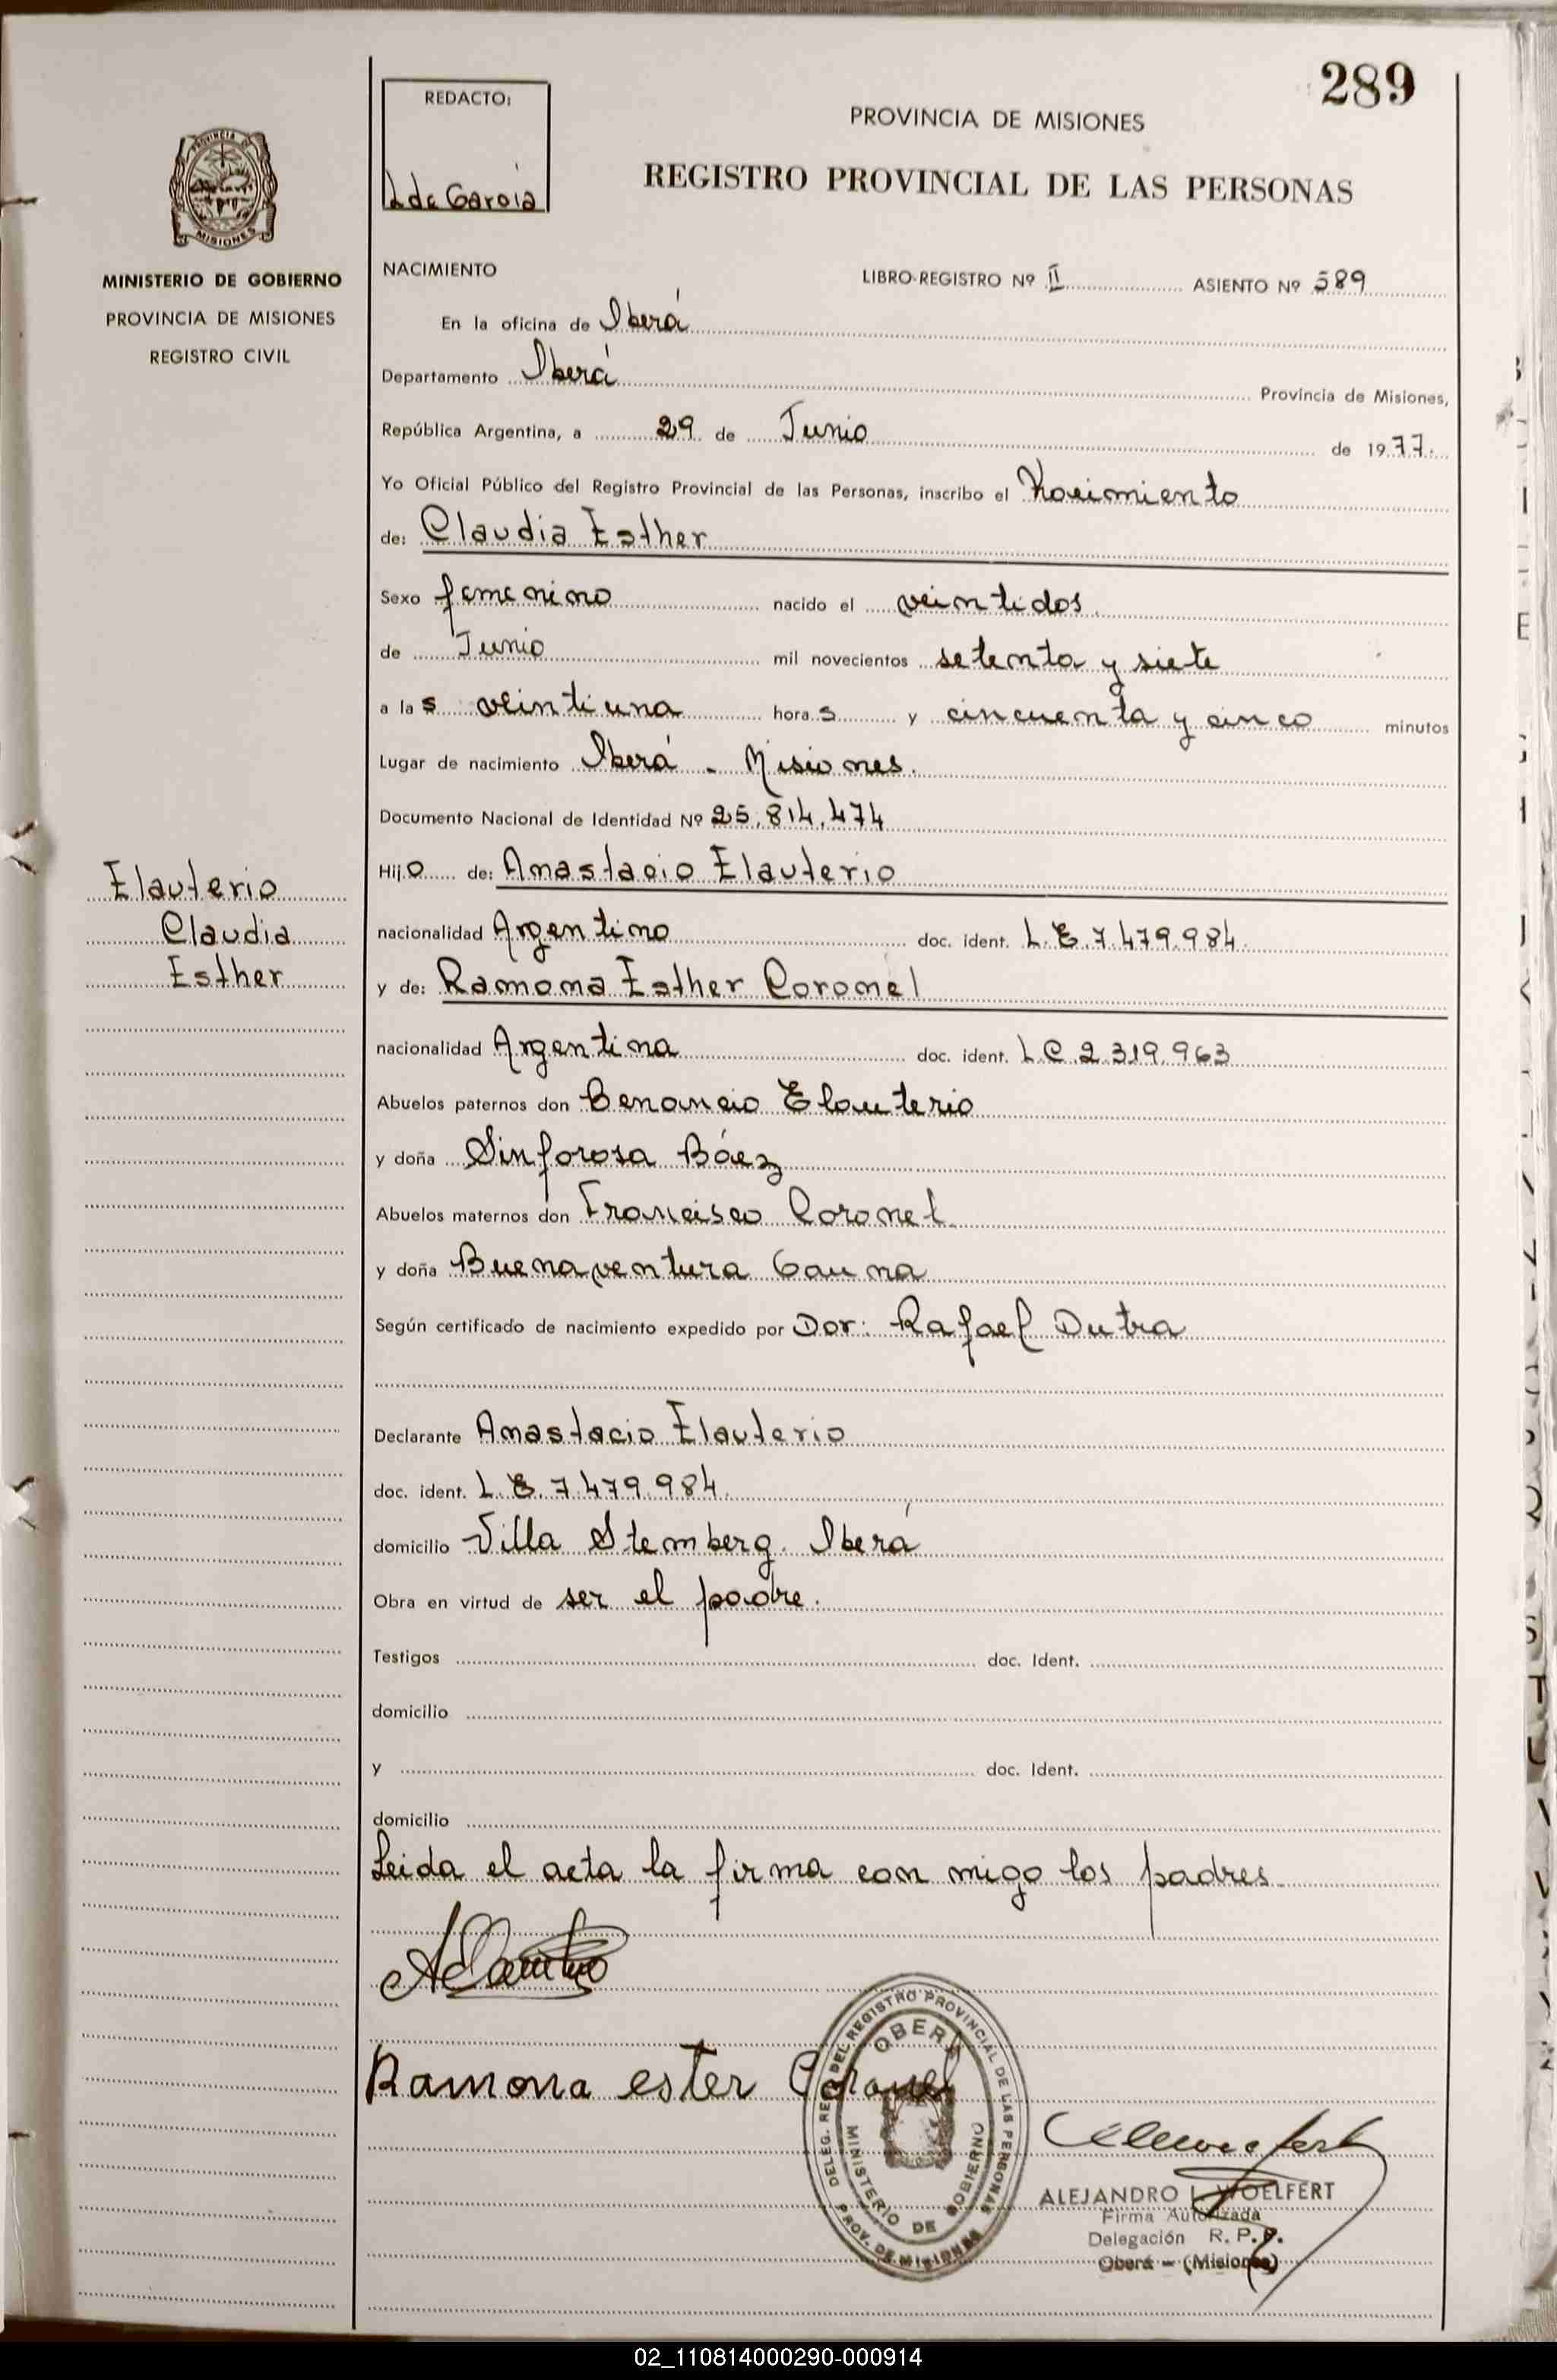 289
REDACTO:
L de Garcia
PROVINCIA DE MISIONES
REGISTRO PROVINCIAL DE LAS PERSONAS
PROVINCIA DE
MISIONES
MINISTERIO DE GOBIERNO
PROVINCIA DE MISIONES
REGISTRO CIVIL
NACIMIENTO LIBRO-REGISTRO Nº II ASIENTO Nº 589
En la oficina de Oberá
Departamento Oberá Provincia de Misiones,
República Argentina, a 29 de Junio de 1977.
Yo Oficial Público del Registro Provincial de las Personas, inscribo el Nacimiento
de: Claudia Esther
Sexo femenino nacido el veintidos
de Junio mil novecientos setenta y siete
a las veintiuna horas y cincuenta y cinco minutos
Lugar de nacimiento Oberá - Misiones.
Documento Nacional de Identidad Nº 25.814.474
Hijo de: Anastacio Elauterio
nacionalidad Argentino doc. ident. L.E.7.479.984.
y de: Ramona Esther Coronel
nacionalidad Argentina doc. ident. L.C.2.319.963
Abuelos paternos don Benancio Elauterio
y doña Sinforosa Báez
Abuelos maternos don Francisco Coronel
y doña Buenaventura Gauna
Según certificado de nacimiento expedido por Dor: Rafael Dutra
Declarante Anastacio Elauterio
doc. ident. L.E.7.479.984.
domicilio Villa Stemberg. Oberá
Obra en virtud de ser el padre.
Testigos doc. Ident.
domicilio
y doc. Ident.
domicilio
Leida el acta la firma con migo los padres
Elauterio
Claudia
Esther
Ramona ester Coronel
DELEG. REG. DEL REGISTRO PROVINCIAL DE LAS PERSONAS
OBERA
MINISTERIO DE GOBIERNO
PROV. DE MISIONES
ALEJANDRO L. WOELFERT
Firma Autorizada
Delegación R. P. P.
Oberá - (Misiones)
02_110814000290-000914